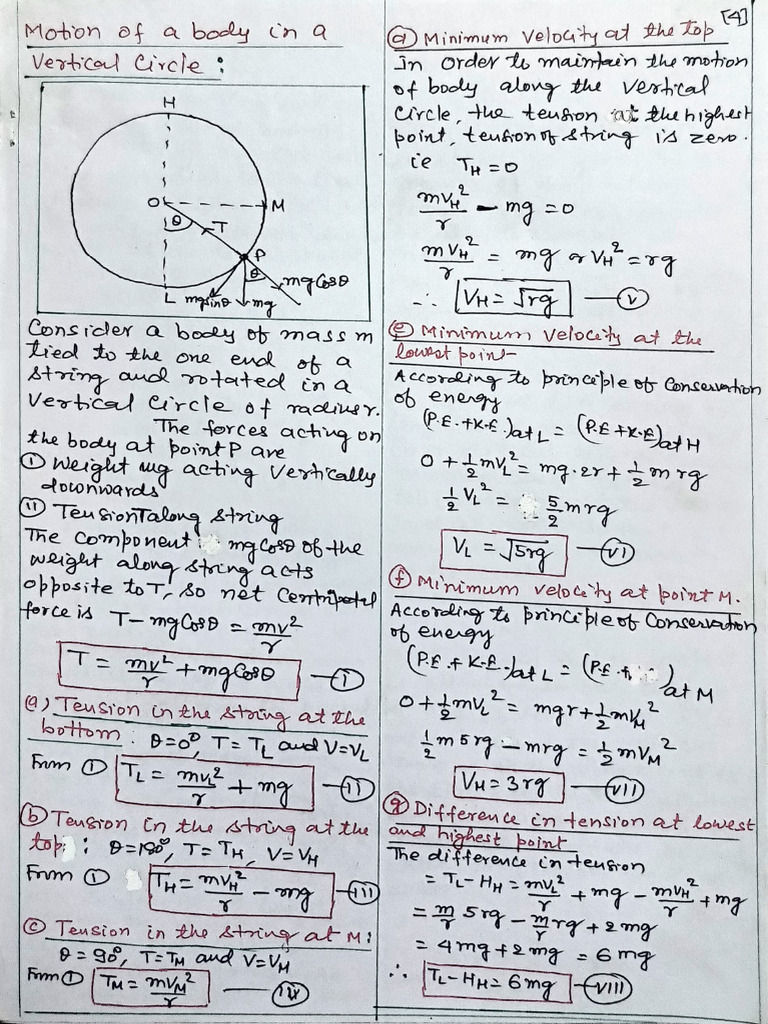 [4]
Motion of a body in a
Vertical Circle :
H
O
M
θ
T
P
θ
mgcosθ
L
mgsinθ
mg
Consider a body of mass m
tied to the one end of a
string and rotated in a
Vertical Circle of radius r.
The forces acting on
the body at point P are
(i) Weight mg acting Vertically
downwards
(ii) Tension T along String
The component mgcosθ of the
weight along string acts
opposite to T, so net Centripetal
force is T - mgcosθ = mv²/r
T = mv²/r + mgcosθ —(i)
(a) Tension in the string at the
bottom : θ=0°, T = TL and V=VL
From (i) TL = mvL²/r + mg —(ii)
(b) Tension in the string at the
top : θ=180°, T=TH, V=VH
From (i) TH = mvH²/r - mg —(iii)
(c) Tension in the string at M :
θ = 90°, T=TM and V=VM
From (i) TM = mVM²/r —(iv)
(d) Minimum Velocity at the top
In order to maintain the motion
of body along the vertical
Circle, the tension at the highest
point, tension of string is zero.
ie TH = 0
mVH²/r - mg = 0
mVH²/r = mg or VH² = rg
∴ VH = √rg —(v)
(e) Minimum Velocity at the
lowest point-
According to principle of Conservation
of energy
(P.E. + K.E.)at L = (P.E + K.E)at H
0 + ½mVL² = mg.2r + ½ m rg
½ VL² = 5/2 mrg
VL = √5rg —(vi)
(f) Minimum Velocity at point M.
According to principle of Conservation
of energy
(P.E. + K.E.)at L = (P.E. + )at M
0 + ½mVL² = mgr + ½mVM²
½ m 5rg - mrg = ½ mVM²
VM = 3rg —(vii)
(g) Difference in tension at lowest
and highest point
The difference in tension
= TL - HH = mVL²/r + mg - mVH²/r + mg
= m/r 5rg - m/r rg + 2mg
= 4mg + 2mg = 6mg
∴ TL - HH = 6mg —(viii)